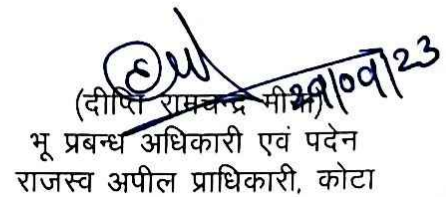 29/09/23
(दीप्ति रामचन्द्र मीणा)
भू प्रबन्ध अधिकारी एवं पदेन
राजस्व अपील प्राधिकारी, कोटा